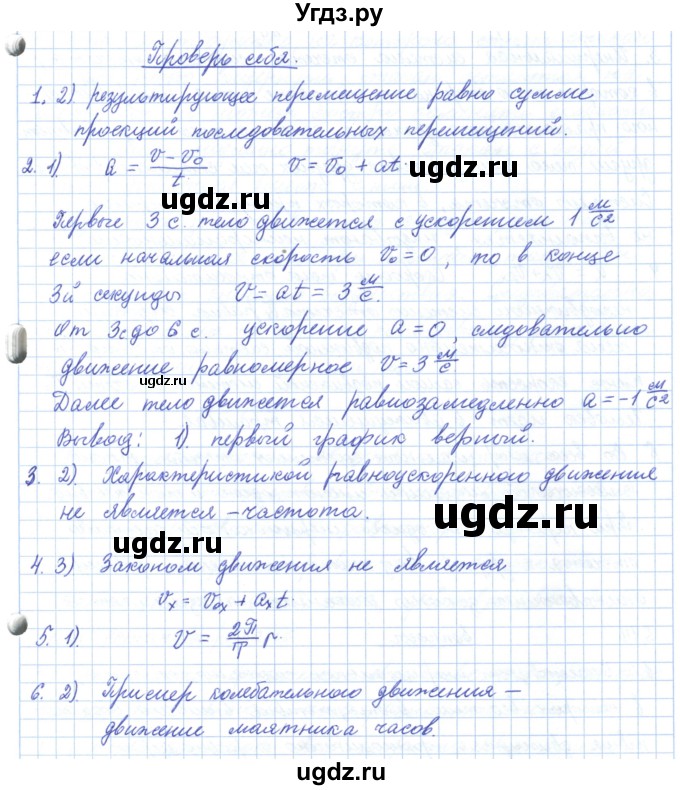 Угдз.ру
Проверь себя.
1. 2) результирующее перемещение равно сумме
проекций последовательных перемещений.
2. 1). a = (v - v₀)/t v = v₀ + at.
ugdz.ru ugdz.ru
Первые 3 с. тело движется с ускорением 1 м/с2
если начальная скорость v₀ = 0, то в конце
3й секунды v = at = 3 м/с.
От 3с до 6 с. ускорение a = 0, следовательно
движение равномерное v = 3 м/с
ugdz.ru
Далее тело движется равнозамедленно a = -1 м/с2
Вывод: 1). первый график верный.
3. 2). Характеристикой равноускоренного движения
не является - частота.
ugdz.ru
ugdz.ru
4. 3) Законом движения не является
vₓ = v₀ₓ + aₓt.
5. 1). v = 2П/T r.
ugdz.ru
6. 2). Пример колебательного движения -
движение маятника часов.
ugdz.ru